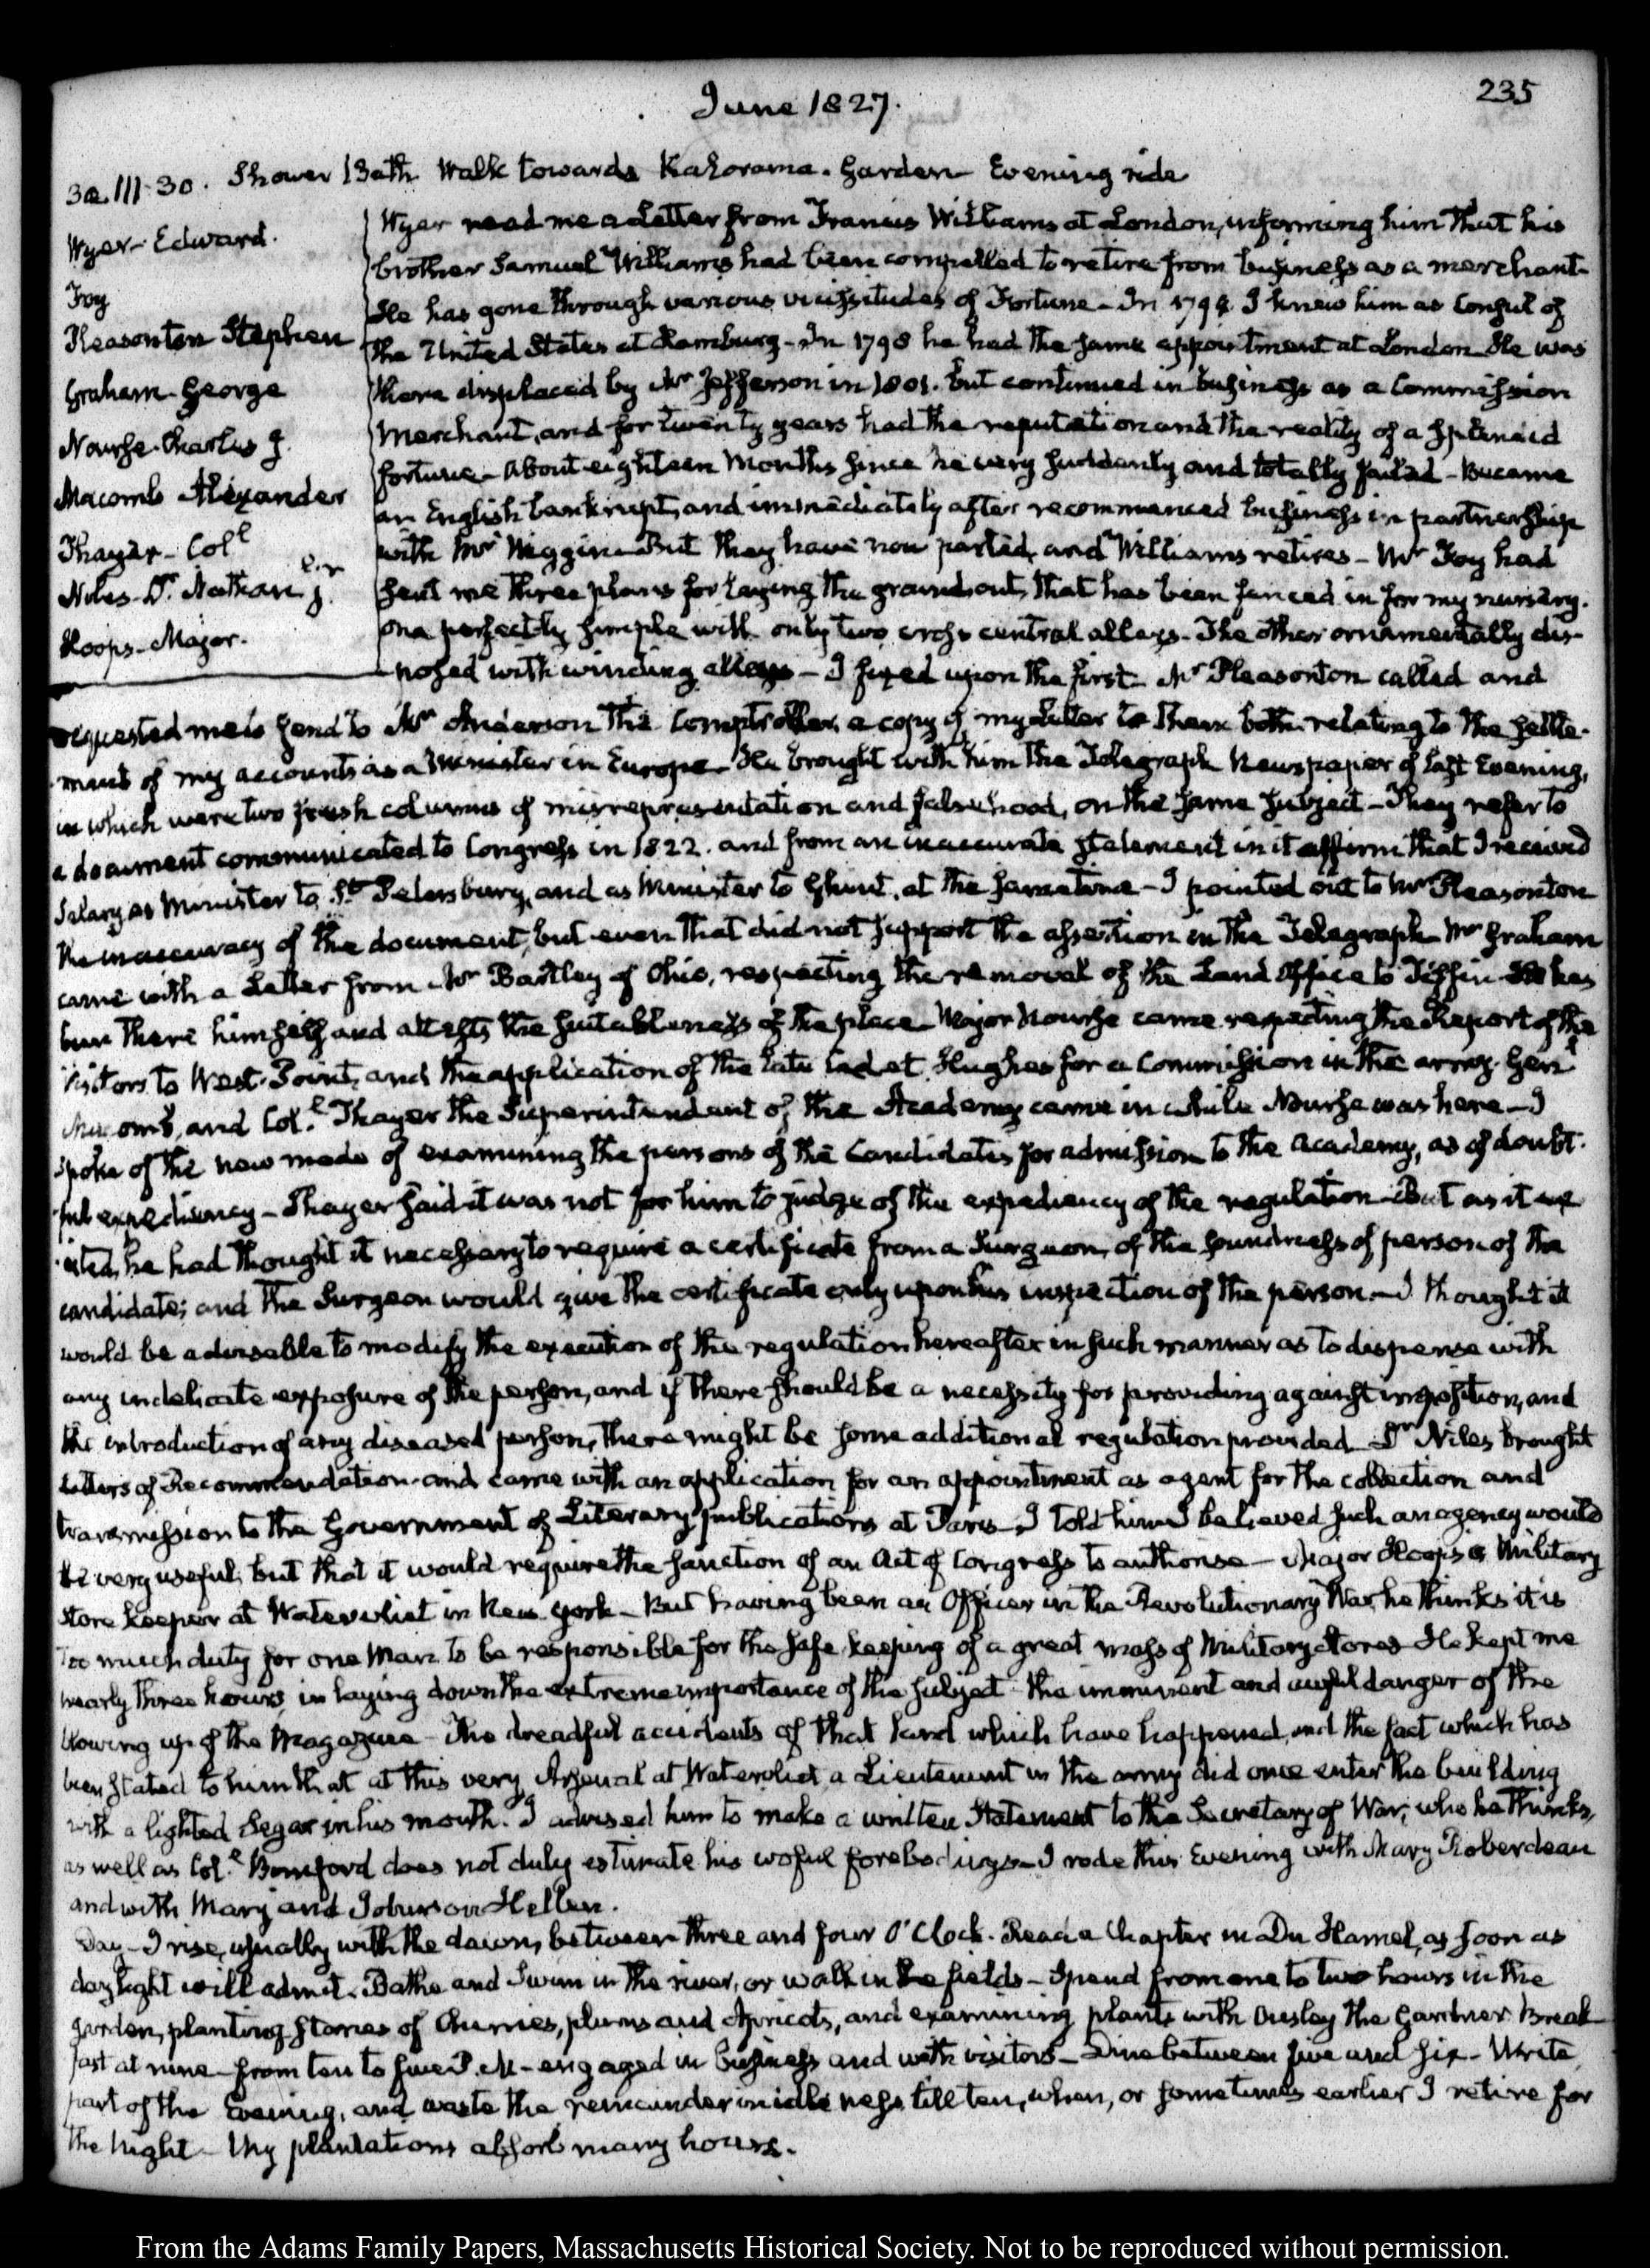 June 1827.
235
30. III:30. Shower Bath Walk towards Kalorama. Garden Evening ride
Wyer Edward.
Foy
Pleasonton Stephen
Graham George
Nourse Charles J.
Macomb Alexander
Thayer Col.l
Niles Dr. Nathan jr.
Hoops Major.
Wyer read me a Letter from Francis Williams at London, informing him that his
brother Samuel Williams had been compelled to retire from business as a merchant.
He has gone through various vicissitudes of Fortune – In 1794. I knew him as Consul of
the United States at Hamburg – In 1798 he had the same appointment at London He was
there displaced by Mr Jefferson in 1801. but continued in business as a Commission
Merchant, and for twenty years had the reputation and the reality of a splendid
fortune – About eighteen Months since he very suddenly and totally failed – Became
an English bankrupt, and immediately after recommenced business in partnership
with Mr Wiggin – But they have now parted, and Williams retires – Mr Foy had
sent me three plans for laying the ground out, that has been fenced in for my nursery.
One perfectly simple with only two cross central alleys – The other ornamentally dis-
posed with winding alleys – I fixed upon the first Mr Pleasonton called and
requested me to send to Mr Anderson the Comptroller, a copy of my Letter to them both relating to the settle-
ment of my accounts as a Minister in Europe – He brought with him the Telegraph Newspaper of last Evening,
in which were two fresh columns of misrepresentation and falsehood, on the same subject – They refer to
a document communicated to Congress in 1822. and from an inaccurate statement in it affirm that I received
Salary as Minister to St. Petersburg, and as Minister to Ghent, at the same time – I pointed out to Mr Pleasonton
the inaccuracy of the document, but even that did not support the assertion in the Telegraph Mr Graham
came with a Letter from Mr Bartley of Ohio, respecting the removal of the Land Office to Tiffin He has
been there himself and attests the suitableness of the place – Major Nourse came respecting the Report of the
Visitors to West-Point, and the application of the late Cadet Hughes for a Commission in the army. Genl
Macomb, and Col.l Thayer the Superintendant of the Academy came in while Nourse was here – I
spoke of the new mode of examining the persons of the Candidates for admission to the Academy, as of doubt-
ful expediency – Thayer said it was not for him to judge of the expediency of the regulation – But as it ex
isted, he had thought it necessary to require a certificate from a Surgeon, of the soundness of person of the
candidate; and the Surgeon would give the certificate only upon his inspection of the person – I thought it
would be adviseable to modify the execution of the regulation hereafter in such manner as to dispense with
any indelicate exposure of the person, and if there should be a necessity for providing against imposition, and
the introduction of any diseased person, there might be some additional regulation provided – Dr Niles brought
Letters of Recommendation and came with an application for an appointment as agent for the collection and
transmission to the Government of Literary publications at Paris – I told him I believed such an agency would
be very useful, but that it would require the sanction of an Act of Congress to authorise – Major Hoops is Military
store keeper at Watervliet in New York – But having been an Officer in the Revolutionary War, he thinks it is
too much duty for one Man to be responsible for the safe keeping of a great mass of Military stores He kept me
nearly three hours, in laying down the extreme importance of the subject – the imminent and awful danger of the
blowing up of the Magazine – The dreadful accidents of that kind which have happened, and the fact which has
been stated to him that at this very Arsenal at Watervliet a Lieutenant in the army did once enter the building
with a lighted Segar in his mouth. I advised him to make a written Statement to the Secretary of War, who he thinks,
as well as Col.l Bomford does not duly estimate his woful forebodings – I rode this Evening with Mary Roberdeau
and with Mary and Johnson Hellen.
Day – I rise, usually with the dawn, between three and four O'Clock. Read a Chapter in Du Hamel, as soon as
daylight will admit. Bathe and Swim in the river, or walk in the fields – Spend from one to two hours in the
garden, planting stones of Cherries, plums and Apricots, and examining plants with Ousley the Gardner. Break-
fast at nine – from ten to five P.M – engaged in business and with visitors – Dine between five and six – Write
part of the Evening, and waste the remainder in idleness till ten, when, or sometimes earlier I retire for
the Night – My plantations absorb many hours.
From the Adams Family Papers, Massachusetts Historical Society. Not to be reproduced without permission.